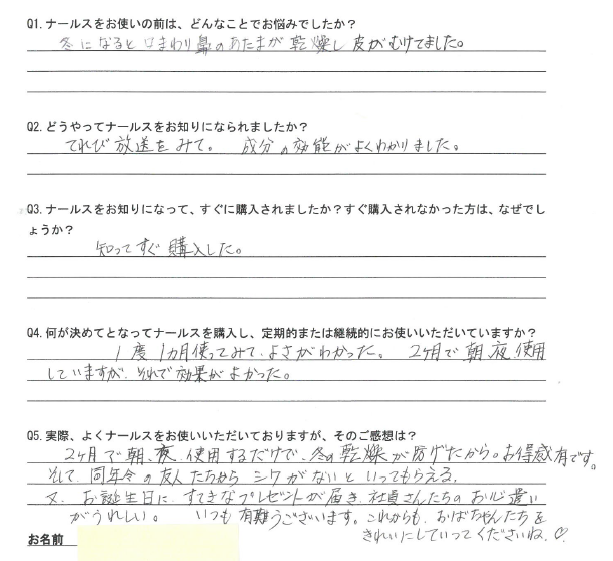 Q1. ナールスをお使いの前は、どんなことでお悩みでしたか？
冬になると口まわり鼻のあたまが乾燥し皮がむけてました。
Q2. どうやってナールスをお知りになられましたか？
てれび放送をみて。 成分の効能がよくわかりました。
Q3. ナールスをお知りになって、すぐに購入されましたか？すぐ購入されなかった方は、なぜでし
ょうか？
知ってすぐ購入した。
Q4. 何が決めてとなってナールスを購入し、定期的または継続的にお使いいただいていますか？
1度1カ月使ってみて、よさがわかった。 2ヶ月で朝、夜使用
していますが、それで効果がよかった。
Q5. 実際、よくナールスをお使いいただいておりますが、そのご感想は？
2ヶ月で朝、夜、使用するだけで、冬の乾燥が防げたから。お得感有です。
そして、同年令の友人たちからシワがないといってもらえる。
又、お誕生日に、すてきなプレゼントが届き、社員さんたちのお心遣い
がうれしい。 いつも有難うございます。これからも、おばちゃんたちを
きれいにしていってくださいね、♡
お名前